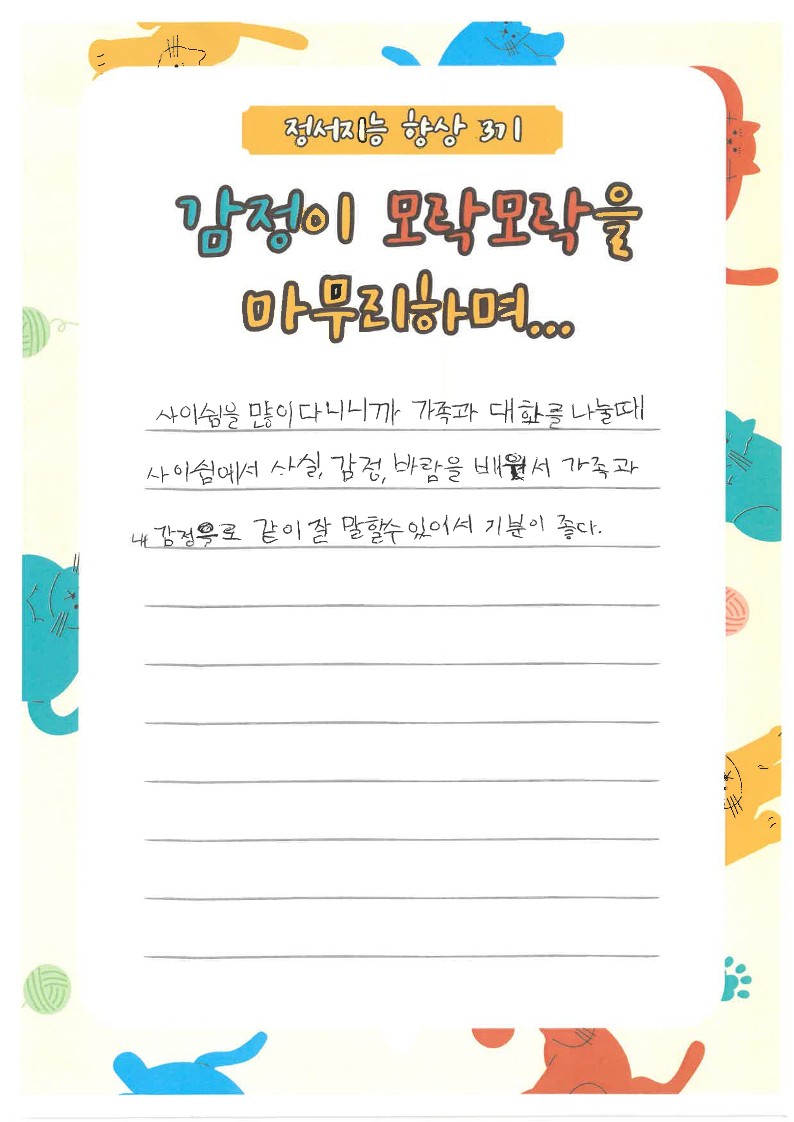 정서지능 향상 3기
감정이 모락모락을
마무리하며...
사이쉼을 많이 다니니까 가족과 대화를 나눌때
사이쉼에서 사실, 감정, 바람을 배워서 가족과
내 감정으로 같이 잘 말할수 있어서 기분이 좋다.